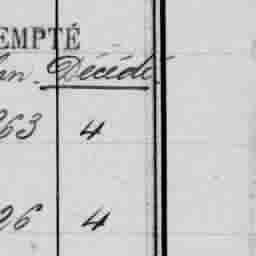 EMPTÉ
on. Décédé
263 4
26 4